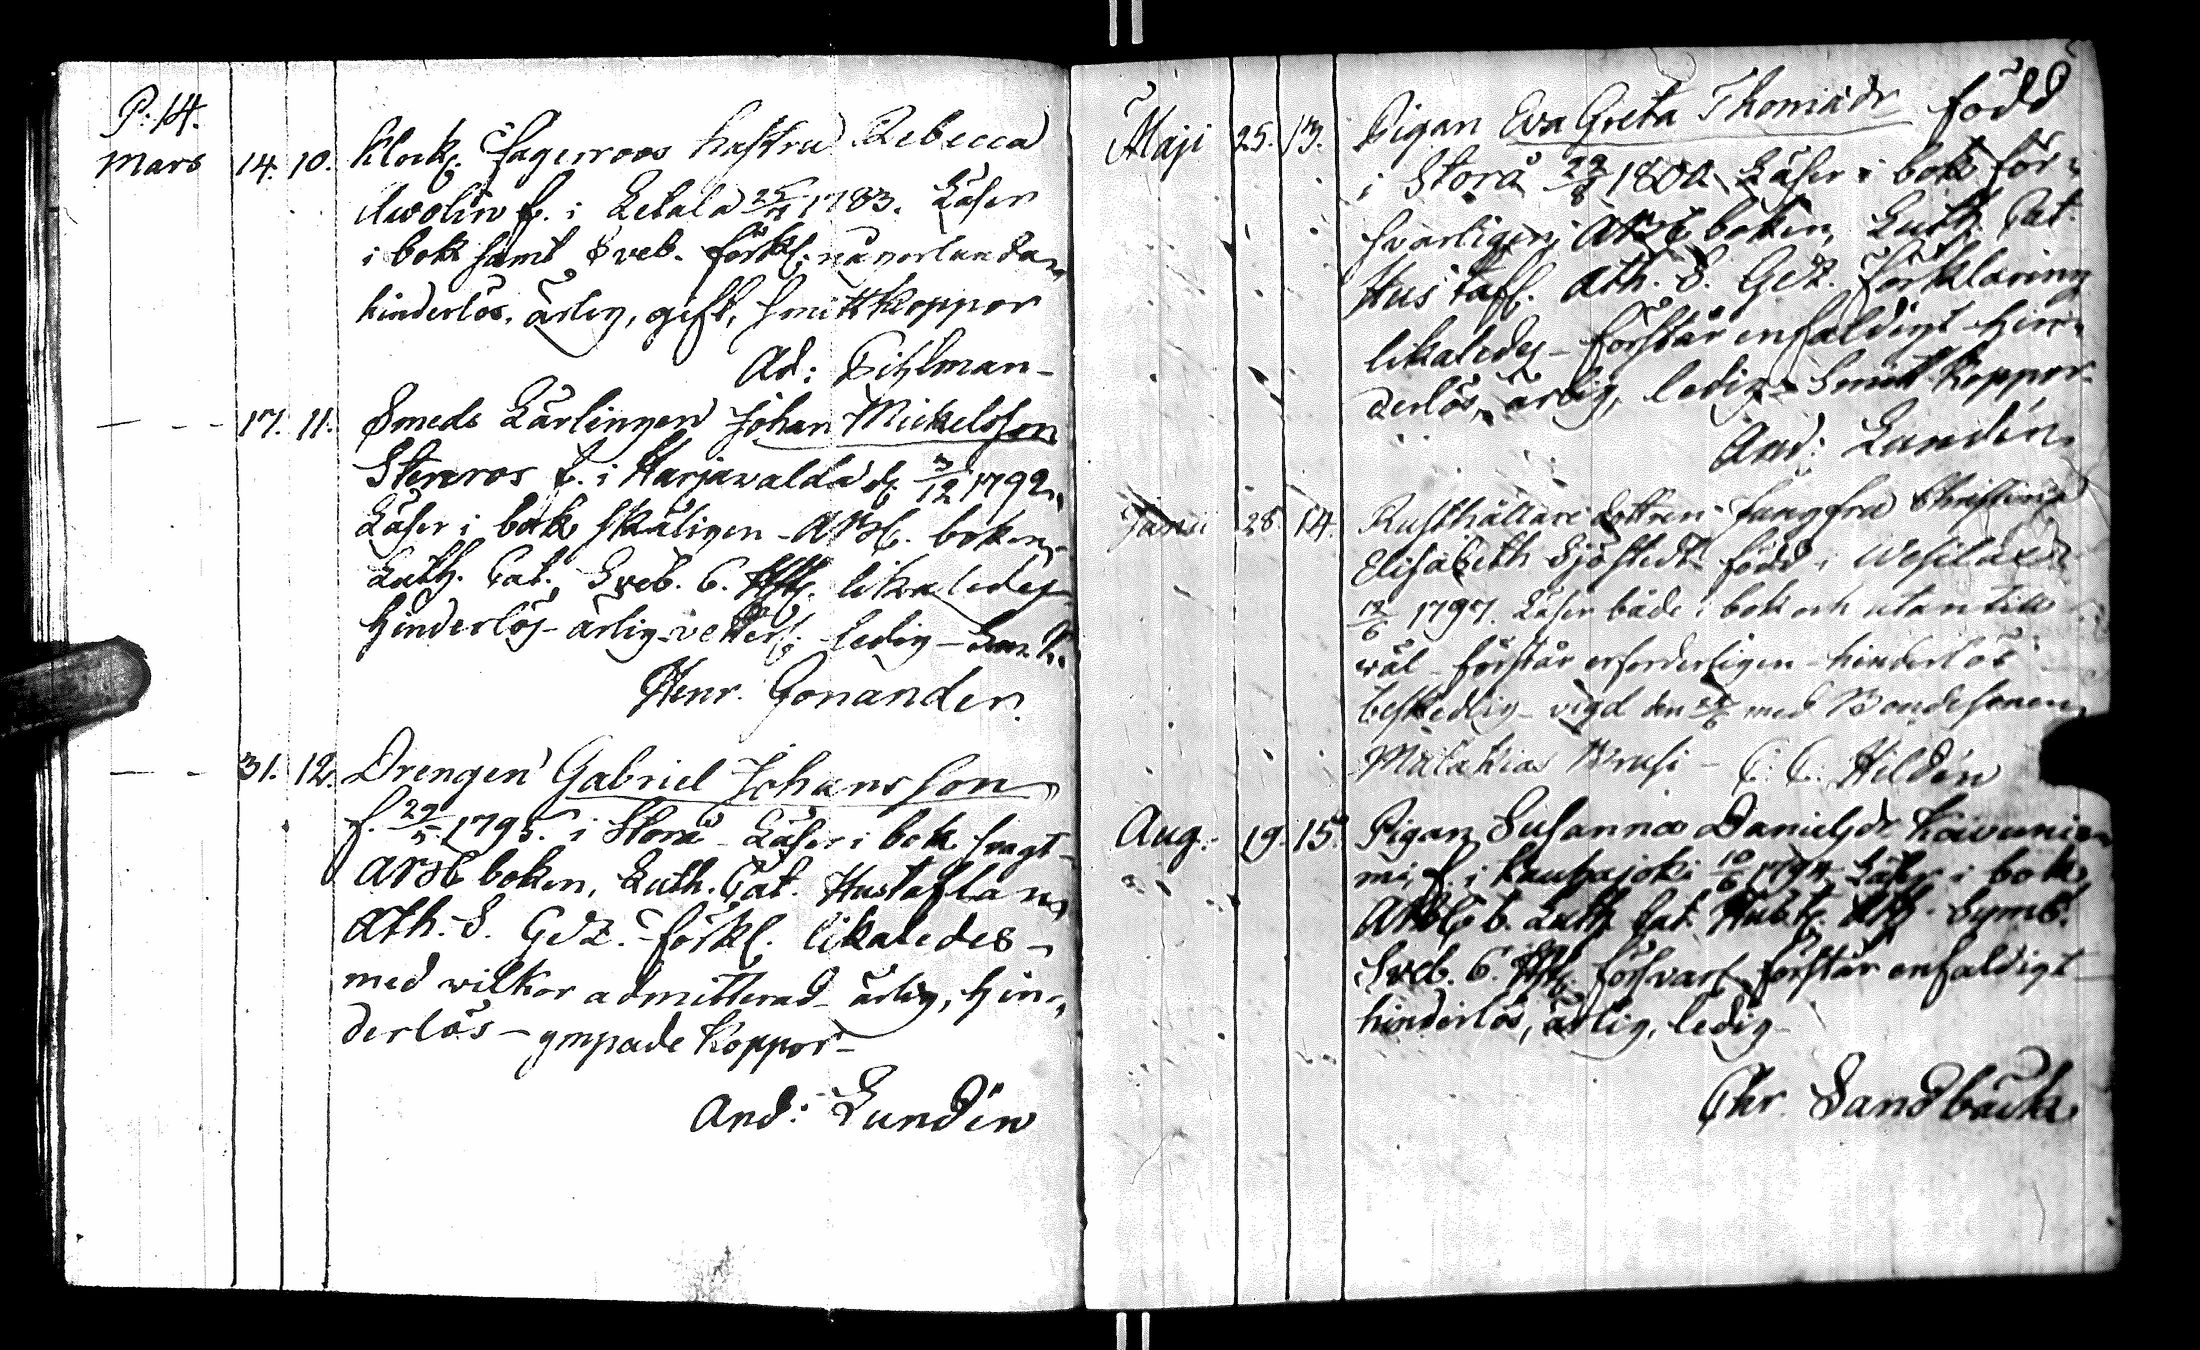 P. 14.
Mars 14. 10. Klock. Fagerroos hustru Rebecca
f. i Letala 25/11 1783. Läser
i bok samt Sveb. förkl.
hinderlös, ärlig, gift, smittkoppor
Ad: Pihlman
— - - 17. 11. Smeds Lärlingen Johan Mickelsson
Stenroos f. i Harjavalda d. 3/12 1792.
Läser i bok skäligen - ABC. boken,
Luth. Cat. Sveb. C. Hft. likaledes
Hinderlös - ärlig - ledig -
Henr. Gonander.
— - 31. 12. Drengen Gabriel Johansson
f. 29/5 1795. i Storå - Läser i bok svagt -
ABC boken, Luth. Cat. Hustaflan
Ath. S. Gez. förkl. likaledes -
med wilkor admitterad - ärlig, hin-
derlös - ympade Koppor -
And: Lundén
Maji 25. 13. Pigan Eva Greta Thomædr född
i Storå 29/8 1800. Läser i bok för-
svarligen, ABC boken, Luth. Cat.
Hustafl. Ath. S. Gez. förklaring
likaledes - förstår enfaldigt hin-
derlös, ärlig, ledig - Smitt Koppor.
And: Lundén.
Junii 28. 14. Rusthållare dottren Jungfru Christina
Elisabeth Sjöstedt född i
12/6 1797. Läser både i bok och utan till
wäl - förstår erforderligen - hinderlös
beskedlig - vigd den med Bondesonen
Malakias Brusi - C. C. Hildén
Aug. 19. 15. Pigan Susanna Danielsdr
f. i Kauhajoki 10/6 Läser i bok
ABC b. Luth. Cat. Hust. Ath. Symb.
Sveb. C. Hft. försvarl. förstår enfaldigt
hinderlös, ärlig, ledig
Chr. Sandbäck